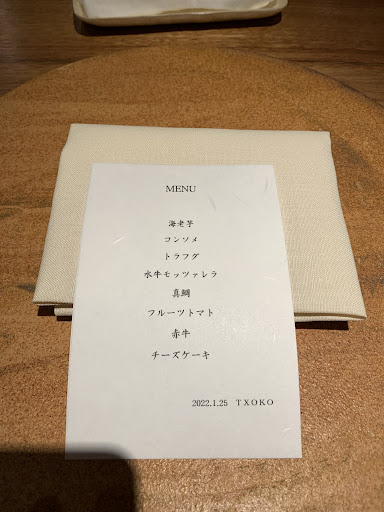 MENU
海老芋
コンソメ
トラフグ
水牛モッツァレラ
真鯛
フルーツトマト
赤牛
チーズケーキ
2022.1.25 TXOKO